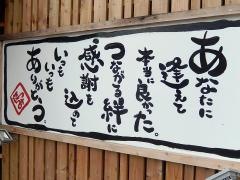 あなたに
逢えて
本当に良かった。
つながる絆に
感謝を
込めて
いつも
いつも
ありがとう。